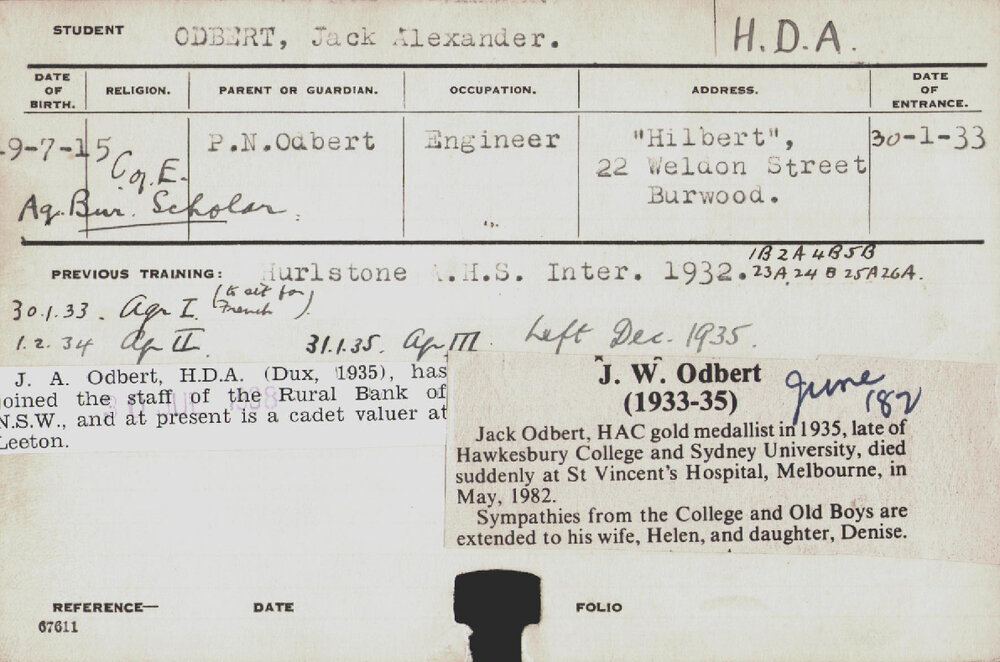 STUDENT ODBERT, Jack Alexander. H.D.A.
DATE OF BIRTH. RELIGION. PARENT OR GUARDIAN. OCCUPATION. ADDRESS. DATE OF ENTRANCE.
9-7-15 P.N.Odbert Engineer "Hilbert", 30-1-33
C of E. 22 Weldon Street
Ag. Bur. Scholar. Burwood.
PREVIOUS TRAINING: Hurlstone A.H.S. Inter. 1932. 1B 2A 4B 5B
23A, 24 B 25A 26A.
30.1.33. Agr I. (to sit for French).
1.2.34 Agr II. 31.1.35. Agr III. Left Dec. 1935.
J. A. Odbert, H.D.A. (Dux, 1935), has
joined the staff of the Rural Bank of
N.S.W., and at present is a cadet valuer at
Leeton.
J. W. Odbert
(1933-35)
June '82
Jack Odbert, HAC gold medallist in 1935, late of
Hawkesbury College and Sydney University, died
suddenly at St Vincent's Hospital, Melbourne, in
May, 1982.
Sympathies from the College and Old Boys are
extended to his wife, Helen, and daughter, Denise.
REFERENCE— DATE FOLIO
67611